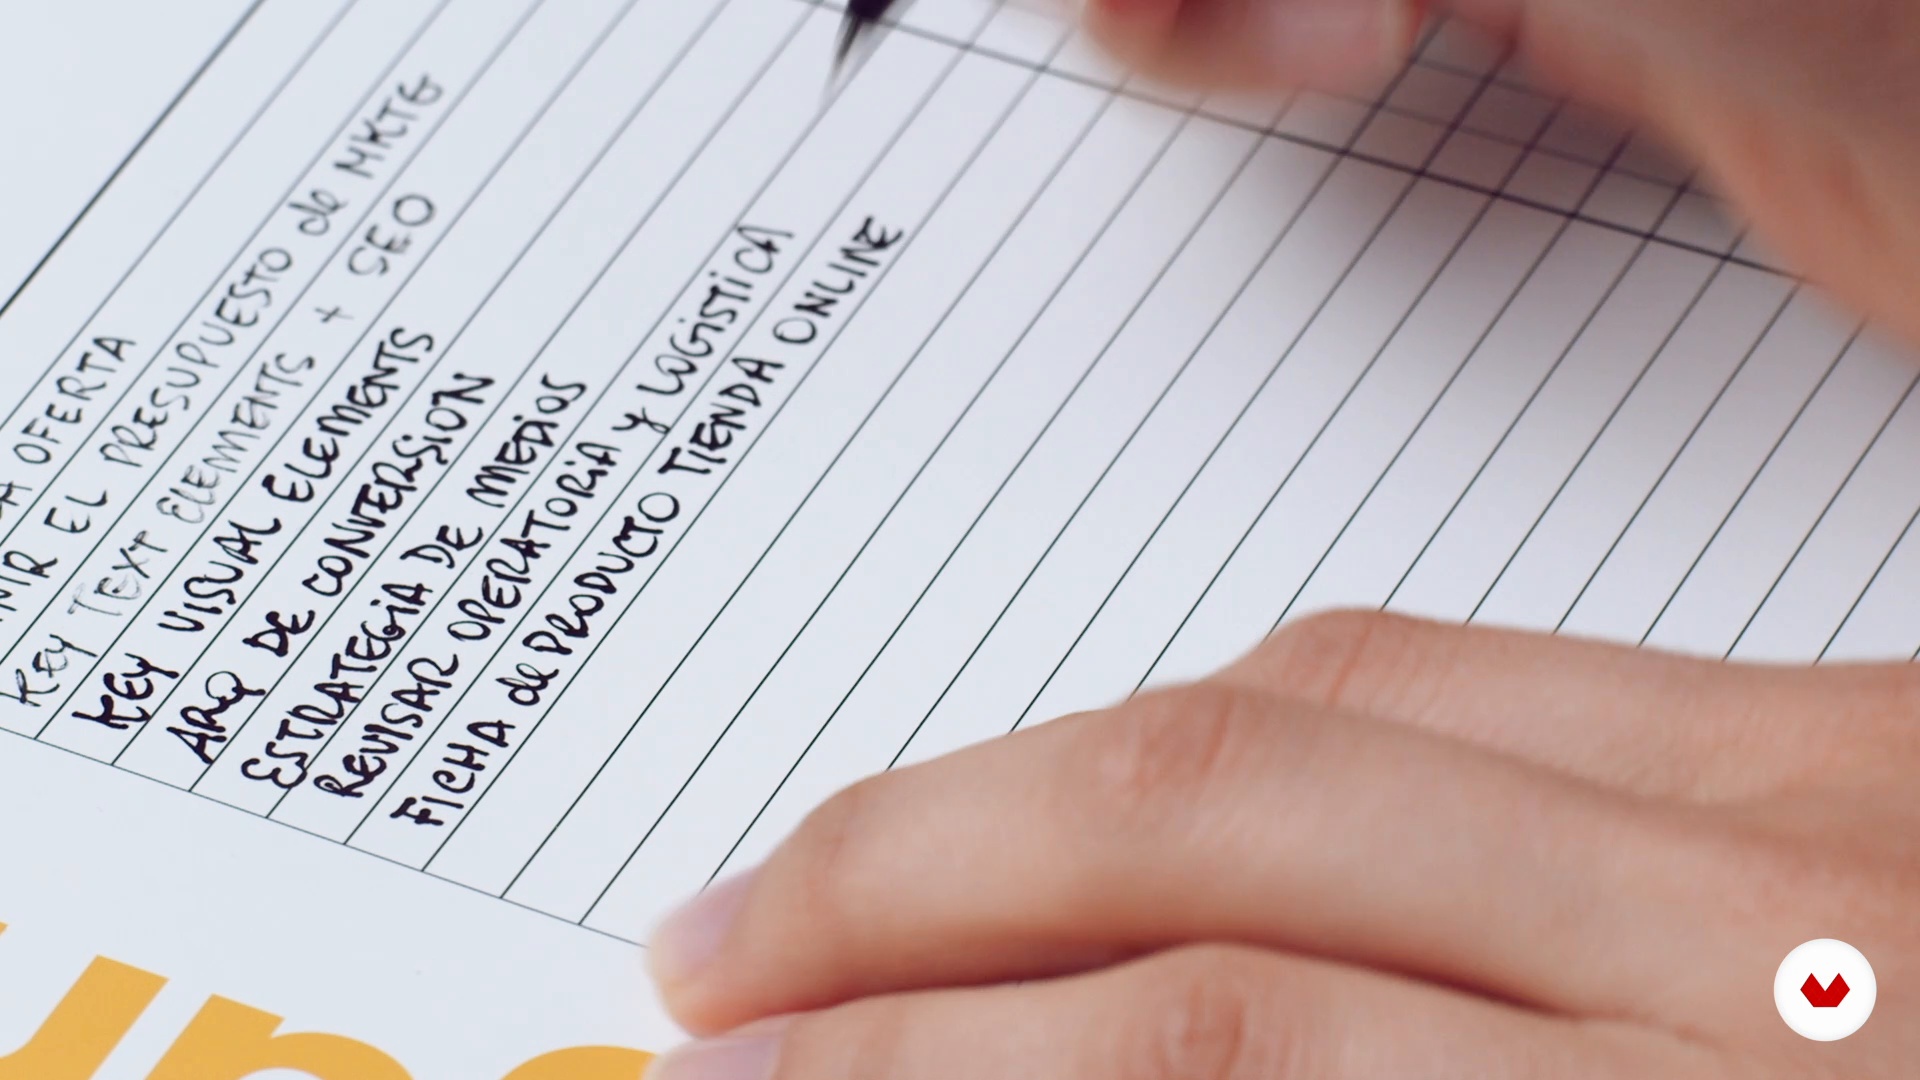 A OFERTA
NIR EL PRESUPUESTO de MKTG
KEY TEXT ELEMENTS + SEO
KEY VISUAL ELEMENTS
ARQ DE CONVERSION
ESTRATEGIA DE MEDIOS
REVISAR OPERATORIA y LOGISTICA
FICHA de PRODUCTO TIENDA ONLINE